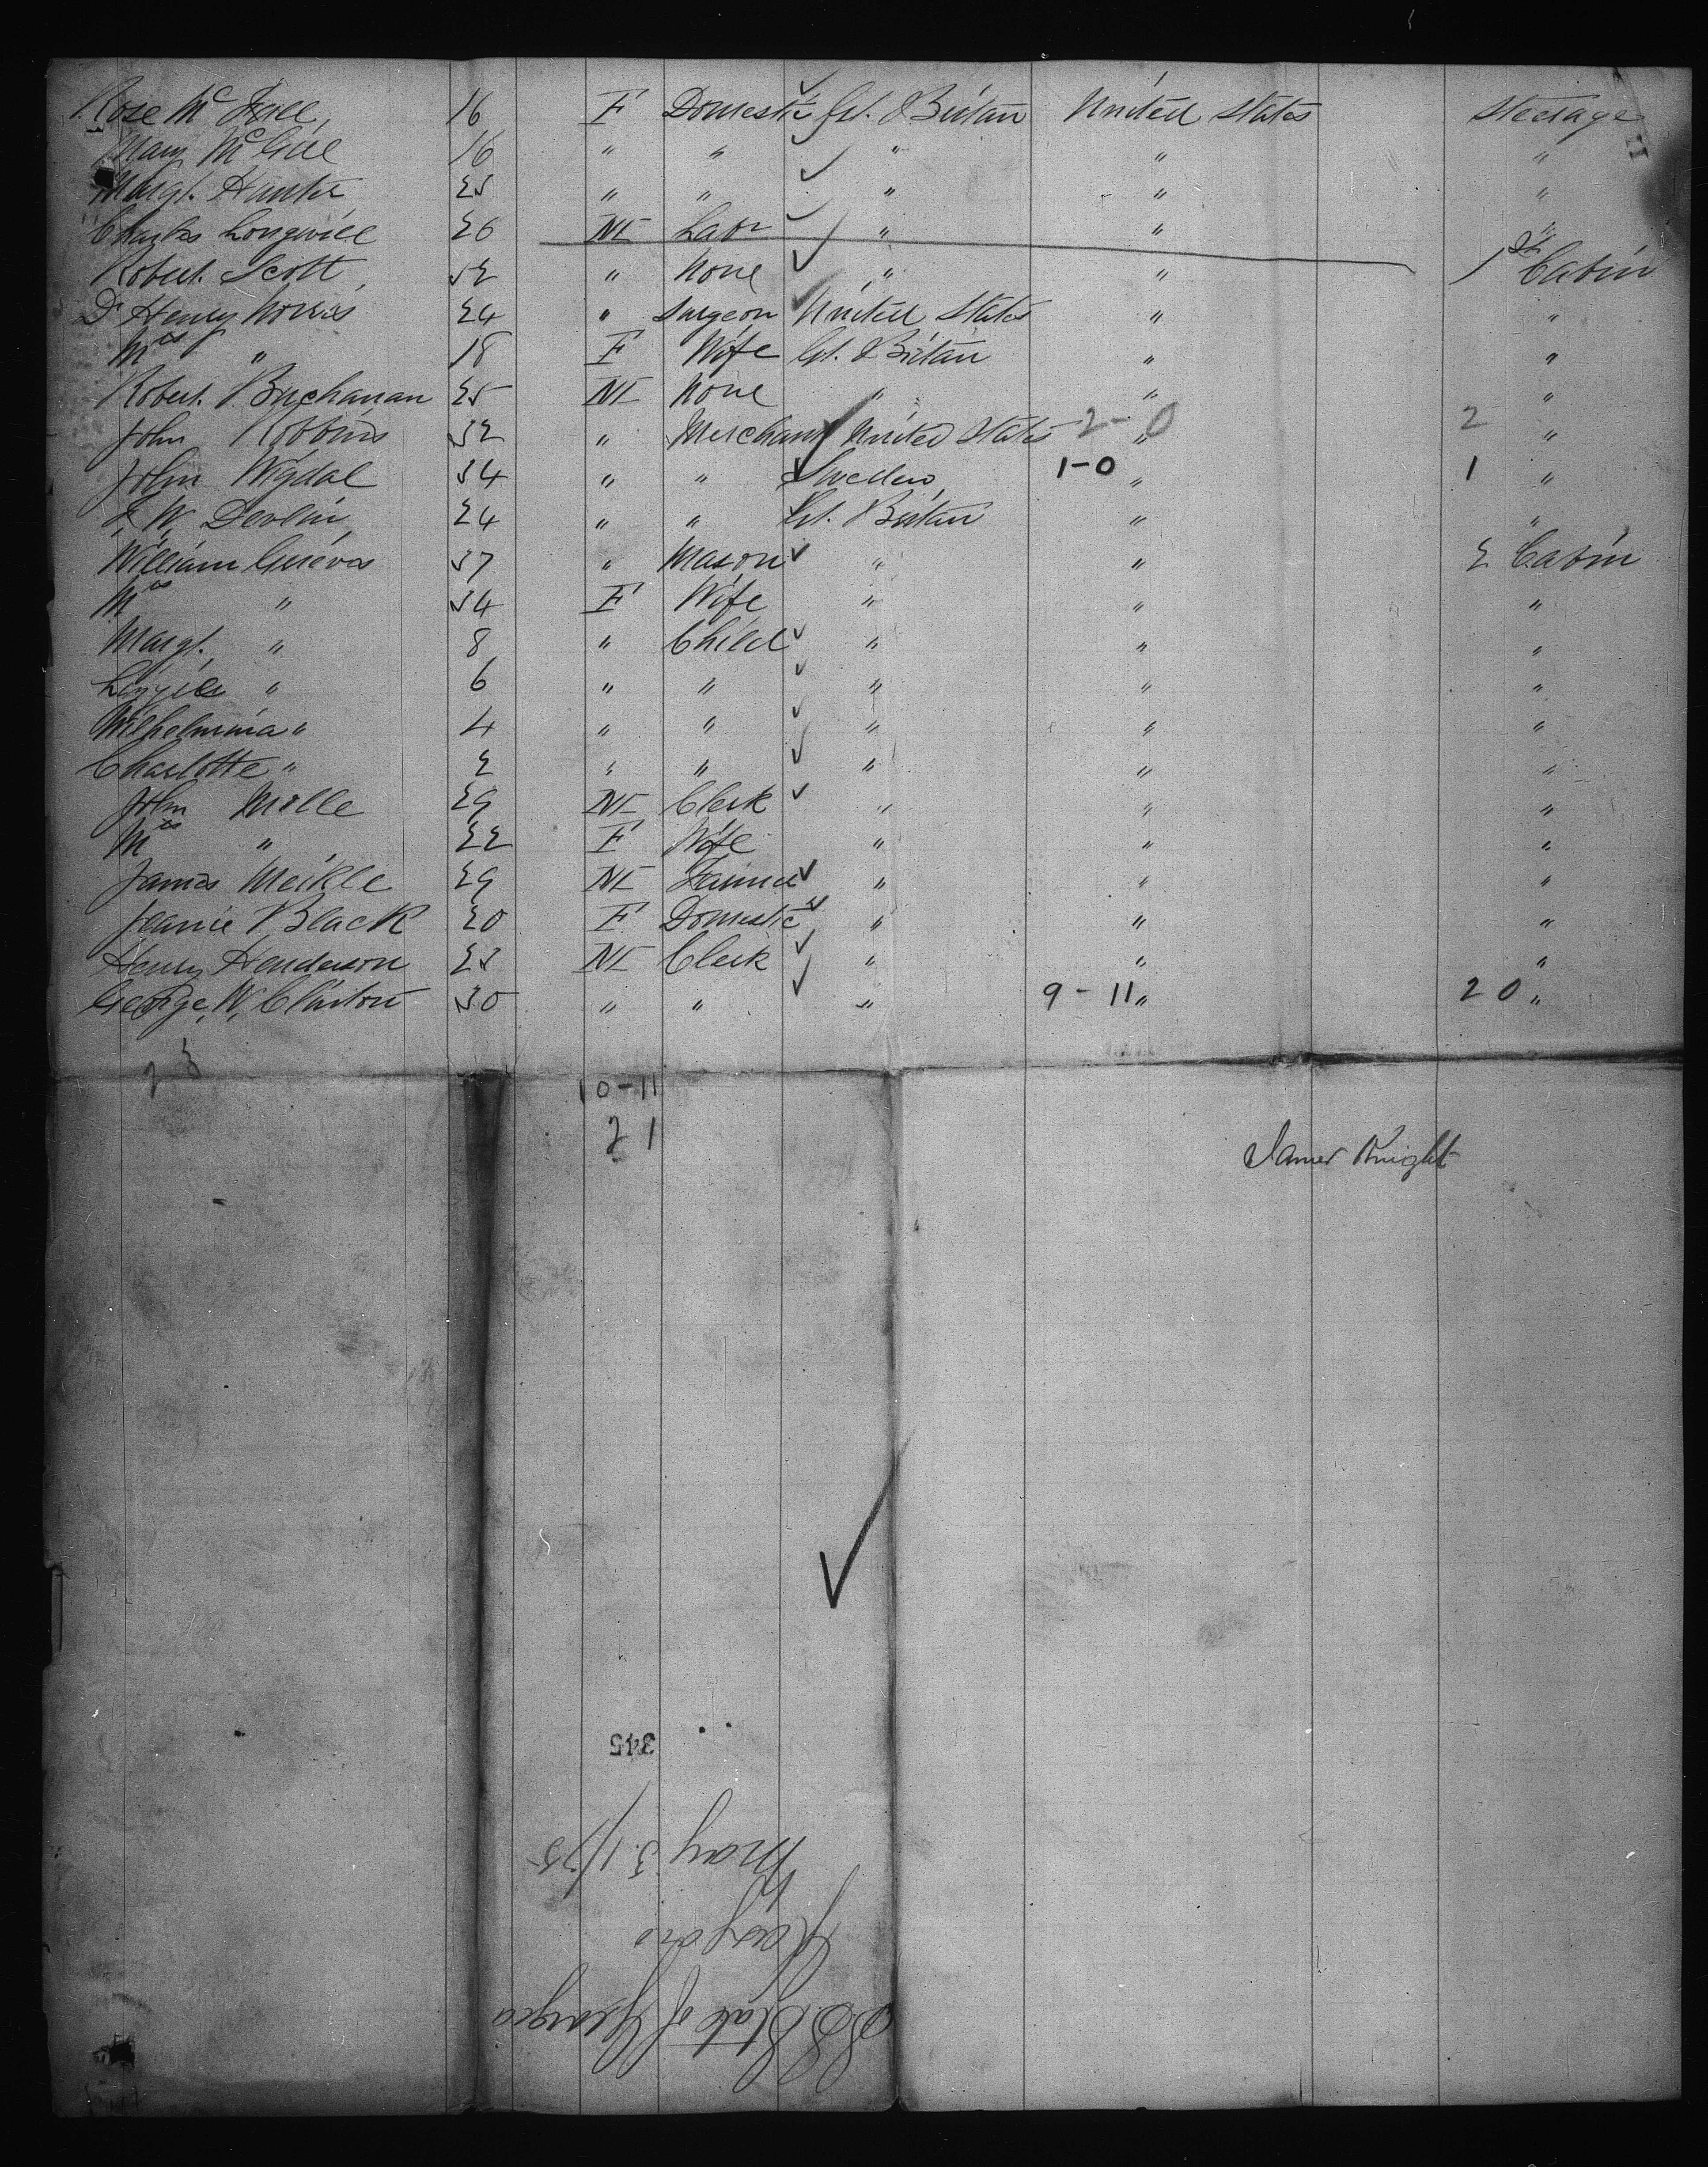 Rose McGill 16 F Domestic Gt. Britain United States Steerage
Mary McGill 16 " " " " "
Margt. Hunter 23 " " " " "
Charles Longwill 26 M Labr " " "
Robert Scott 32 " None " " 1st Cabin
Dr Henry Norris 24 " Surgeon United States " "
Mrs " 18 F Wife Gt. Britain " "
Robert Buchanan 25 M None " " "
John Robbins 32 " Merchant United States 2-0 " 2 "
John Wigdal 34 " " Sweden 1-0 " 1 "
J. W. Devlin 24 " " Gt. Britain " "
William Grieves 37 " Mason " " 2 Cabin
Mrs " 34 F Wife " " "
Margt. " 8 " Child " " "
Lizzie " 6 " " " " "
Wilhelmina " 4 " " " " "
Charlotte " 2 " " " " "
John Mille 29 M Clerk " " "
Mrs " 22 F Wife " " "
James Meikle 29 M Farmer " " "
Jeanie Black 20 F Domestic " " "
Henry Henderson 23 M Clerk " " "
George W. Clinton 30 " " " 9-11 " 20 "
23
10-11
21
James Knight
345
May 31/75
Glasgow
SS State of Georgia